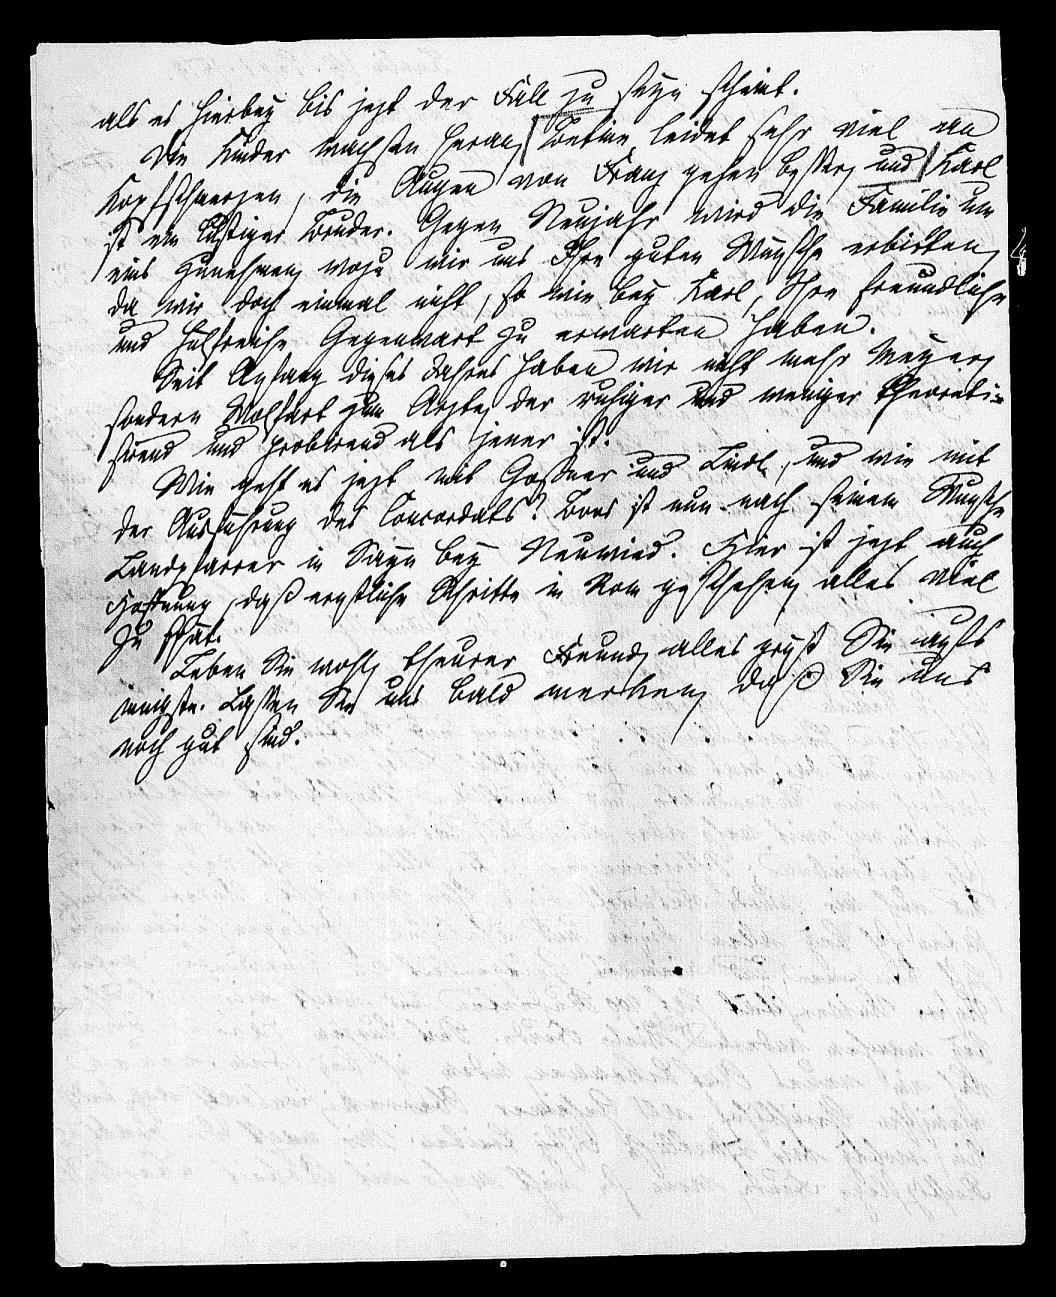 als es hierbey bis jezt der Fall zu seyn scheint.
Die Kinder wachsen heran, Bettine leidet sehr viel an
Kopfschmerzen, die Augen von Franz gehen besser, und Karl
ist ein lustiger Bruder. Gegen Neujahr wird die Familie um
eins zunehmen, wozu wir uns Ihre guten Wünsche erbitten,
da wir doch einmal nicht, so wie bey Karl, Ihre freundliche
und hülfreiche Gegenwart zu erwarten haben.
Seit Anfang dieses Jahres haben wir nicht mehr Meyer,
sondern Wolfart zum Arzte, der ruhiger und weniger theoreti-
sirend und probirend als jener ist.
Wie geht es jezt mit Goßner und Lindl, und wie mit
der Ausführung des Concordats? Boos ist nun nach seinem Wunsche
Landpfarrer in Sayn bey Neuwied. Hier ist jezt auch
Hoffnung, daß ernstliche Schritte in Rom geschehen, alles viel
zu spät.
Leben Sie wohl, theurer Freund, alles grüßt Sie aufs
innigste. Lassen Sie uns bald merken, daß Sie uns
noch gut sind.